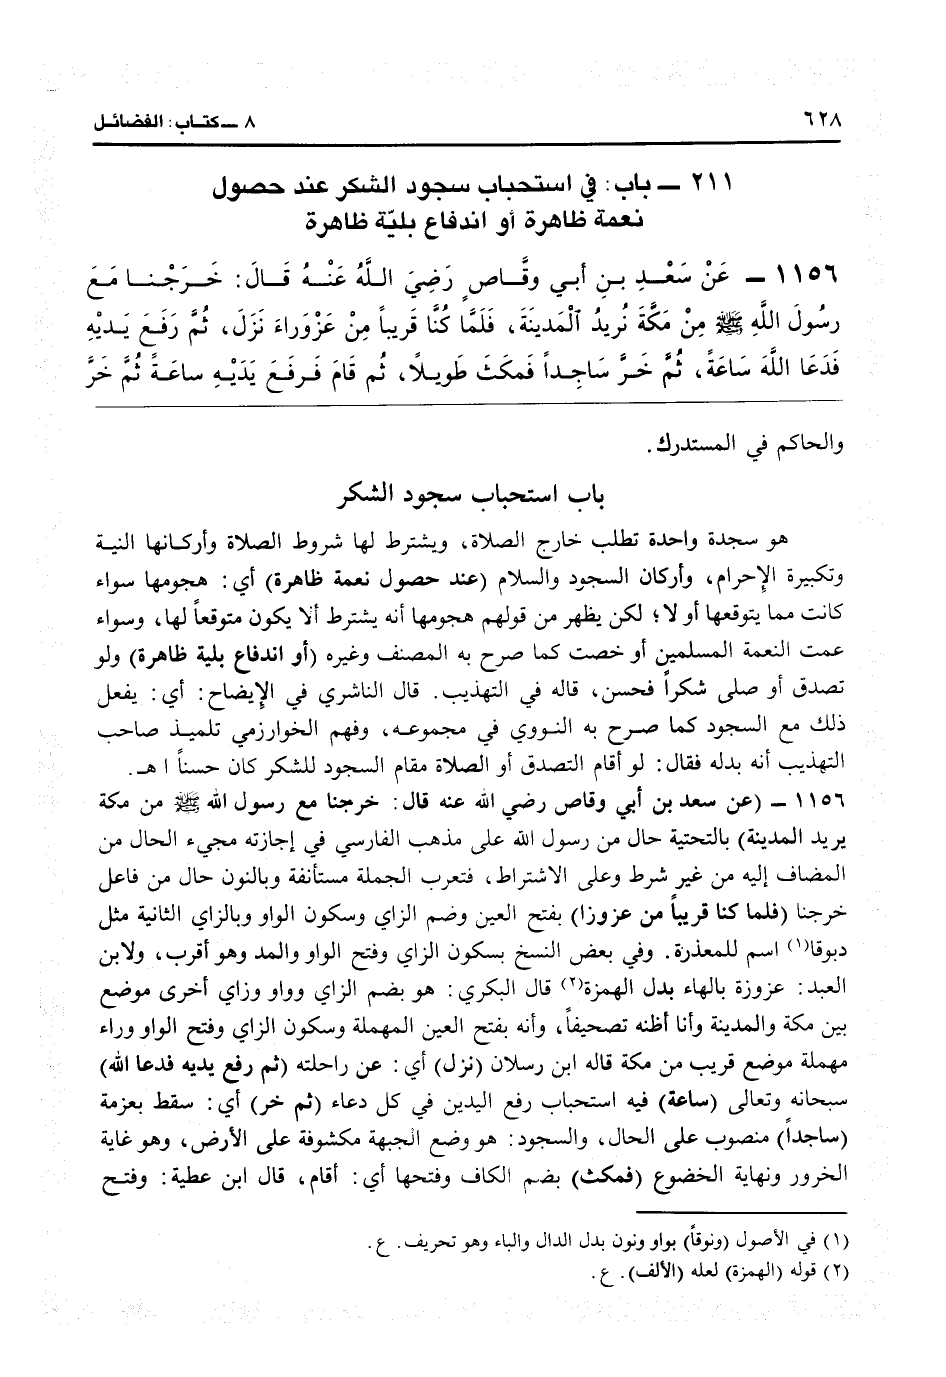 ٦٢٨
٨ ـ كتاب: الفضائل
٢١١ ـ باب: في استحباب سجود الشكر عند حصول
نعمة ظاهرة أو اندفاع بليّة ظاهرة
١١٥٦ ـ عَنْ سَعْدِ بنِ أبي وقَّاصٍ رَضِيَ اللَّهُ عَنْهُ قَالَ: خَرَجْنا مَعَ
رسُولَ اللَّهِ ﷺ مِنْ مَكَّةَ نُرِيدُ ٱلْمَدِينَةَ، فَلَمَّا كُنَّا قَرِيباً مِنْ عَزْوَراءَ نَزَلَ، ثُمَّ رَفَعَ يَدَيْهِ
فَدَعَا اللَّهَ سَاعَةً، ثُمَّ خَرَّ سَاجِداً فَمكَثَ طَويلاً، ثُم قامَ فَرفَعَ يَدَيْهِ ساعَةً ثُمَّ خَرَّ
والحاكم في المستدرك.
باب استحباب سجود الشكر
هو سجدة واحدة تطلب خارج الصلاة، ويشترط لها شروط الصلاة وأركانها النية
وتكبيرة الإحرام، وأركان السجود والسلام (عند حصول نعمة ظاهرة) أي: هجومها سواء
كانت مما يتوقعها أو لا؛ لكن يظهر من قولهم هجومها أنه يشترط ألا يكون متوقعاً لها، وسواء
عمت النعمة المسلمين أو خصت كما صرح به المصنف وغيره (أو اندفاع بلية ظاهرة) ولو
تصدق أو صلى شكراً فحسن، قاله في التهذيب. قال الناشري في الإيضاح: أي: يفعل
ذلك مع السجود كما صرح به النووي في مجموعه، وفهم الخوارزمي تلميذ صاحب
التهذيب أنه بدله فقال: لو أقام التصدق أو الصلاة مقام السجود للشكر كان حسناً ا هـ.
١١٥٦ ـ (عن سعد بن أبي وقاص رضي الله عنه قال: خرجنا مع رسول الله ﷺ من مكة
يريد المدينة) بالتحتية حال من رسول الله على مذهب الفارسي في إجازته مجيء الحال من
المضاف إليه من غير شرط وعلى الاشتراط، فتعرب الجملة مستأنفة وبالنون حال من فاعل
خرجنا (فلما كنا قريباً من عزوزا) بفتح العين وضم الزاي وسكون الواو وبالزاي الثانية مثل
دبوقا(١) اسم للمعذرة. وفي بعض النسخ بسكون الزاي وفتح الواو والمد وهو أقرب، ولابن
العبد: عزوزة بالهاء بدل الهمزة(٢) قال البكري: هو بضم الزاي وواو وزاي أخرى موضع
بين مكة والمدينة وأنا أظنه تصحيفاً، وأنه بفتح العين المهملة وسكون الزاي وفتح الواو وراء
مهملة موضع قريب من مكة قاله ابن رسلان (نزل) أي: عن راحلته (ثم رفع يديه فدعا الله)
سبحانه وتعالى (ساعة) فيه استحباب رفع اليدين في كل دعاء (ثم خر) أي: سقط بعزمة
(ساجداً) منصوب على الحال، والسجود: هو وضع الجبهة مكشوفة على الأرض، وهو غاية
الخرور ونهاية الخضوع (فمكث) بضم الكاف وفتحها أي: أقام، قال ابن عطية: وفتح
(١) في الأصول (ونوقاً) بواو ونون بدل الدال والباء وهو تحريف. ع.
(٢) قوله (الهمزة) لعله (الألف). ع.